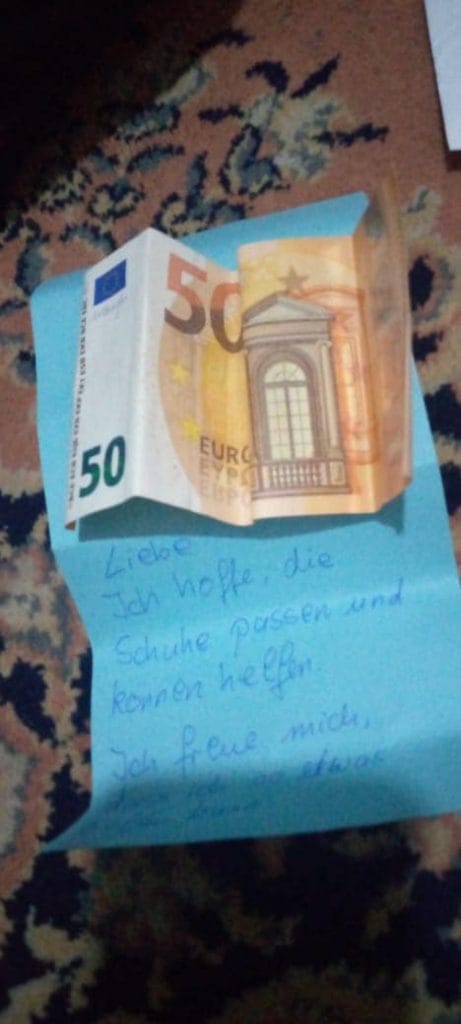 50
EURO
ΕΥΡΩ
50
Liebe
Ich hoffe, die
Schuhe passen und
können helfen
Ich freue mich,
etwas